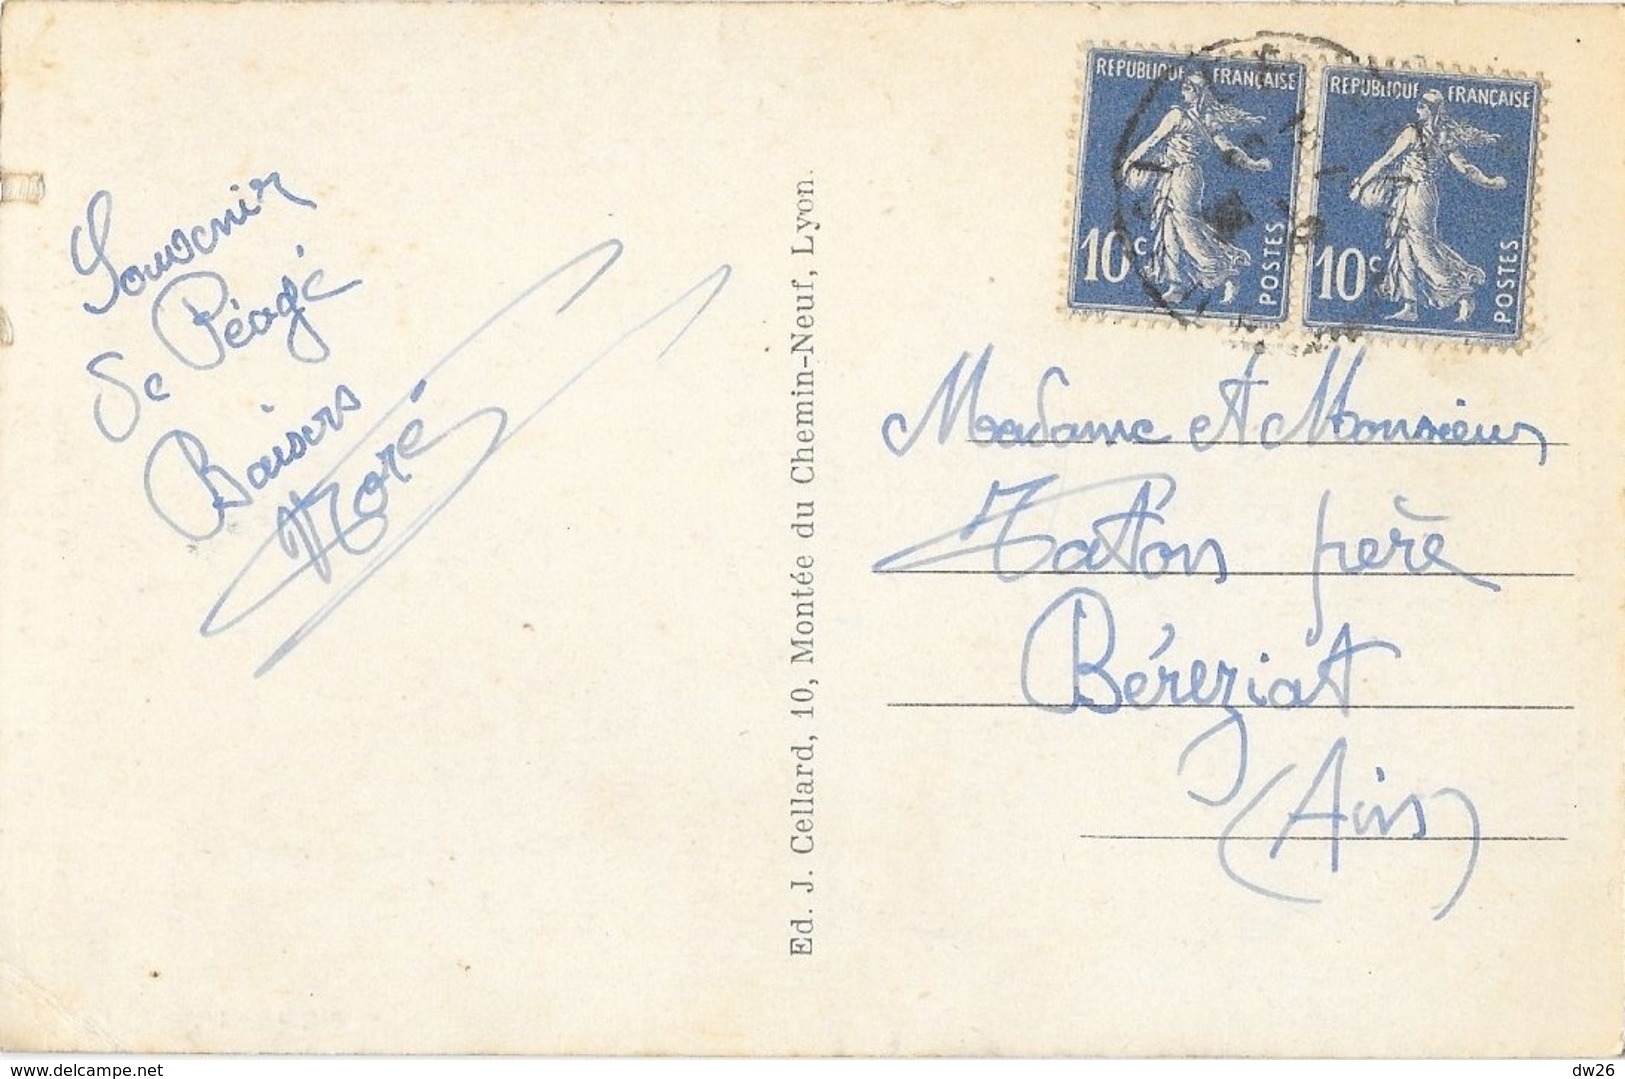 Souvenir
de Péage
Baisers
Moré
Ed. J. Cellard, 10, Montée du Chemin-Neuf, Lyon.
REPUBLIQUE FRANÇAISE
10c
POSTES
REPUBLIQUE FRANÇAISE
10c
POSTES
Madame et Monsieur
Taton père
Béréziat
(Ain)
delcampe.net
dw26